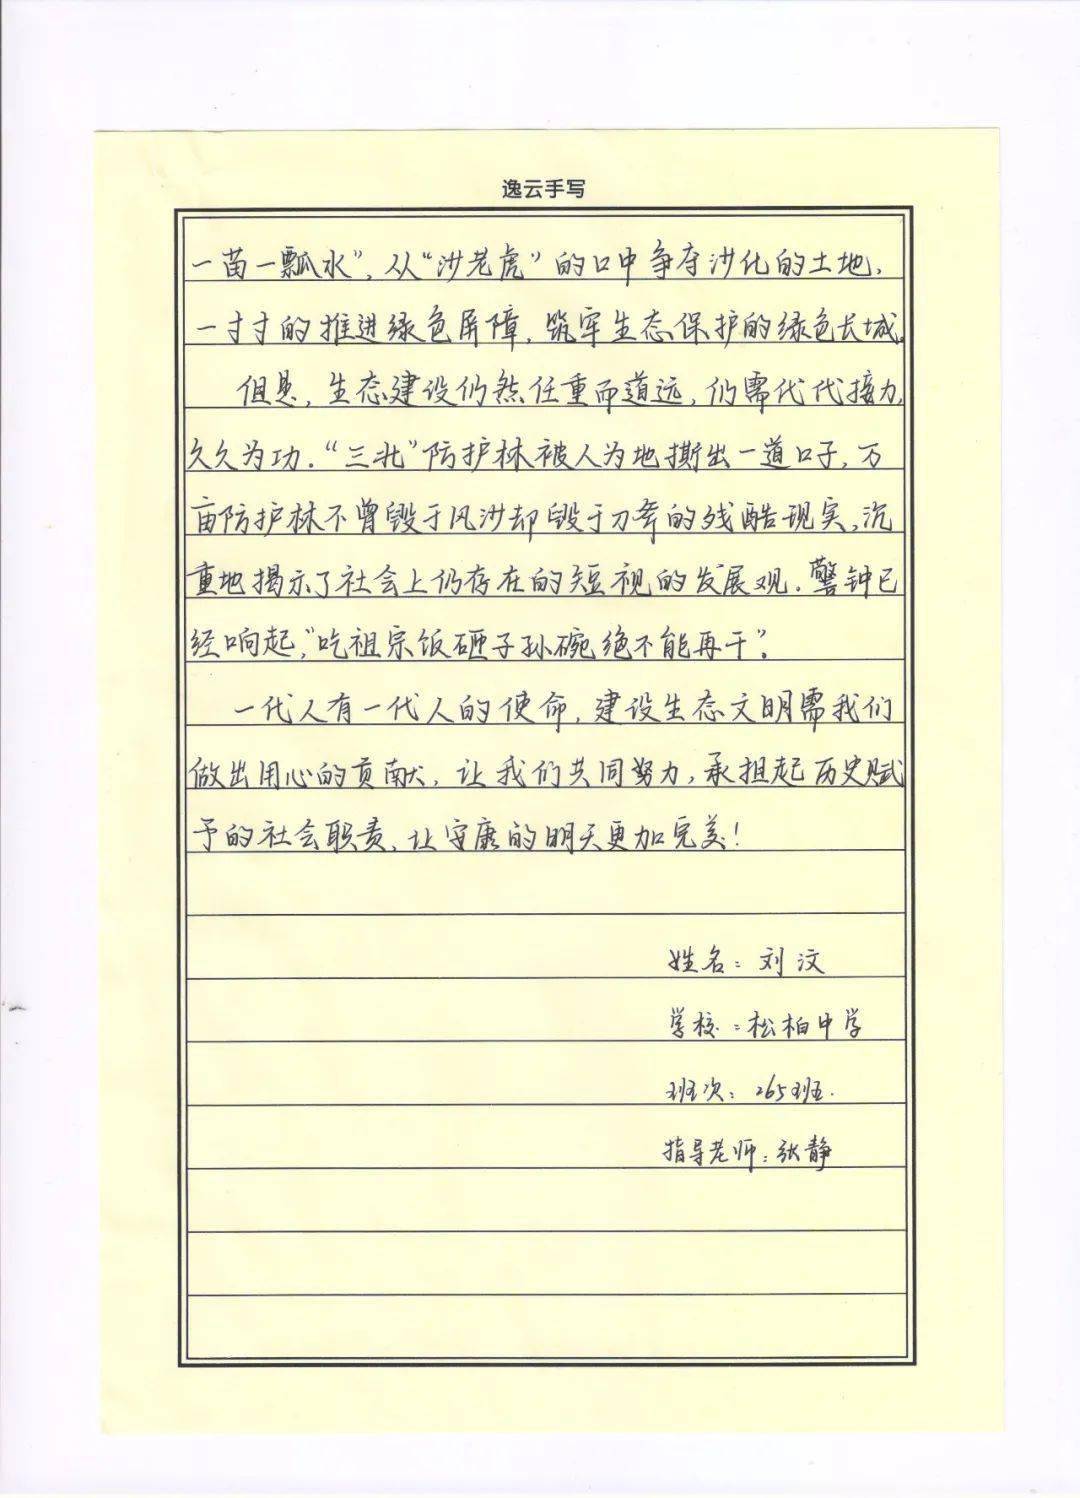 逸云手写
一苗一瓢水”，从“沙老虎”的口中争夺沙化的土地，
一寸寸的推进绿色屏障，筑牢生态保护的绿色长城。
但是，生态建设仍然任重而道远，仍需代代接力，
久久为功．“三北”防护林被人为地撕出一道口子，万
亩防护林不曾毁于风沙却毁于刀斧的残酷现实，沉
重地揭示了社会上仍存在的短视的发展观．警钟已
经响起，“吃祖宗饭砸子孙碗绝不能再干”。
一代人有一代人的使命，建设生态文明需我们
做出用心的贡献，让我们共同努力，承担起历史赋
予的社会职责，让安康的明天更加完美！
姓名：刘汶
学校：松柏中学
班次：265班．
指导老师：张静